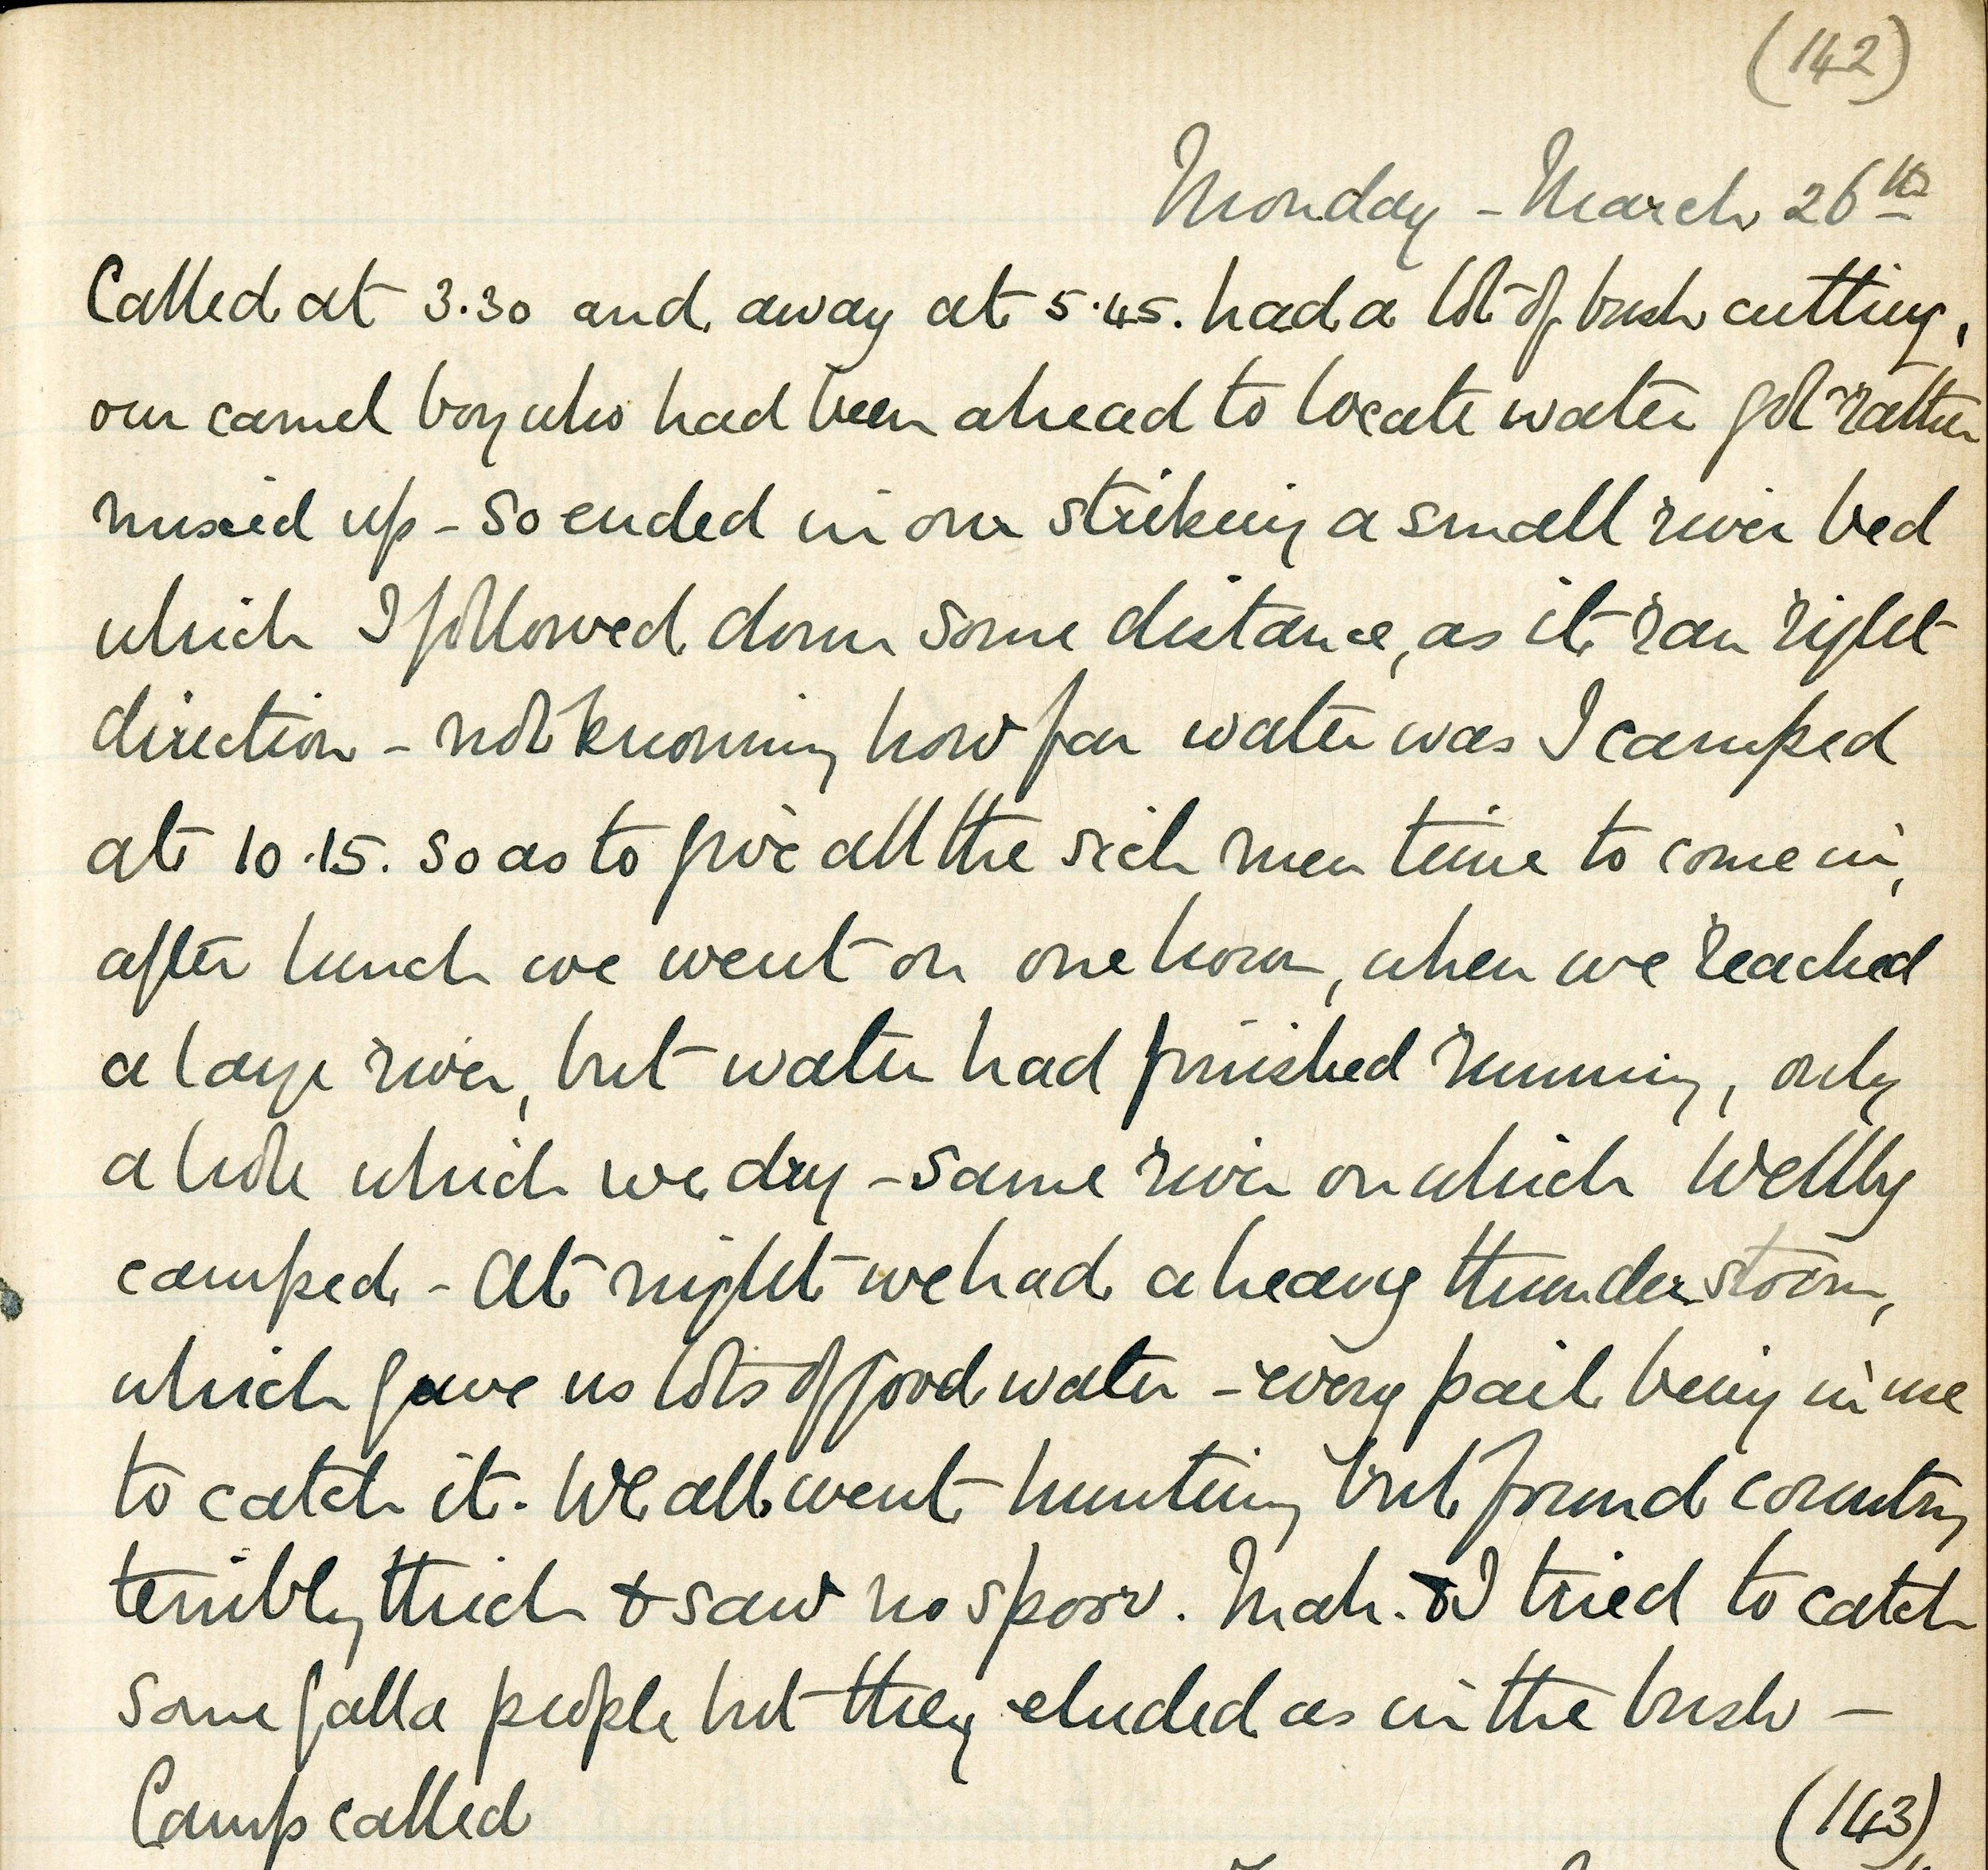 (142)
Monday - March 26th
Called at 3.30 and away at 5.45. had a lot of bush cutting,
our camel boy who had been ahead to locate water got rather
mixed up - so ended in our striking a small river bed
which I followed down some distance, as it ran right
direction - not knowing how far water was I camped
at 10.15. so as to give all the sick men time to come in,
after lunch we went on one hour, when we reached
a large river, but water had finished running, only
a hole which we dry - same river on which Wellby
camped - At night we had a heavy thunder storm,
which gave us lots of good water - every pail being in use
to catch it. We all went hunting but found country
terribly thick & saw no spoor. Mah. & I tried to catch
some galla people but they eluded us in the bush -
Camp called
(143)